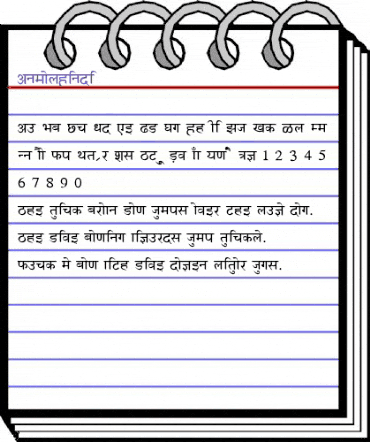 अनमोलहनिद​ि
अउ भब छच धद एइ ढड घग हह ीि झज खक ळल म्म
न्न ौो फप थत,र श्स ठट ूु ड़व ाँ यण ैे त्रज्ञ 1 2 3 4 5
6 7 8 9 0
ठहइ तुचिक बरोान डोण जुमपस ोवइर टहइ लउज्ञे दोग.
ठहइ डविइ बोणनिग ाज्ञिउरदस जुमप तुचिकले.
फउचक मे बोण ाटिह डविइ दोज्ञइन लतिुोर जुगस.